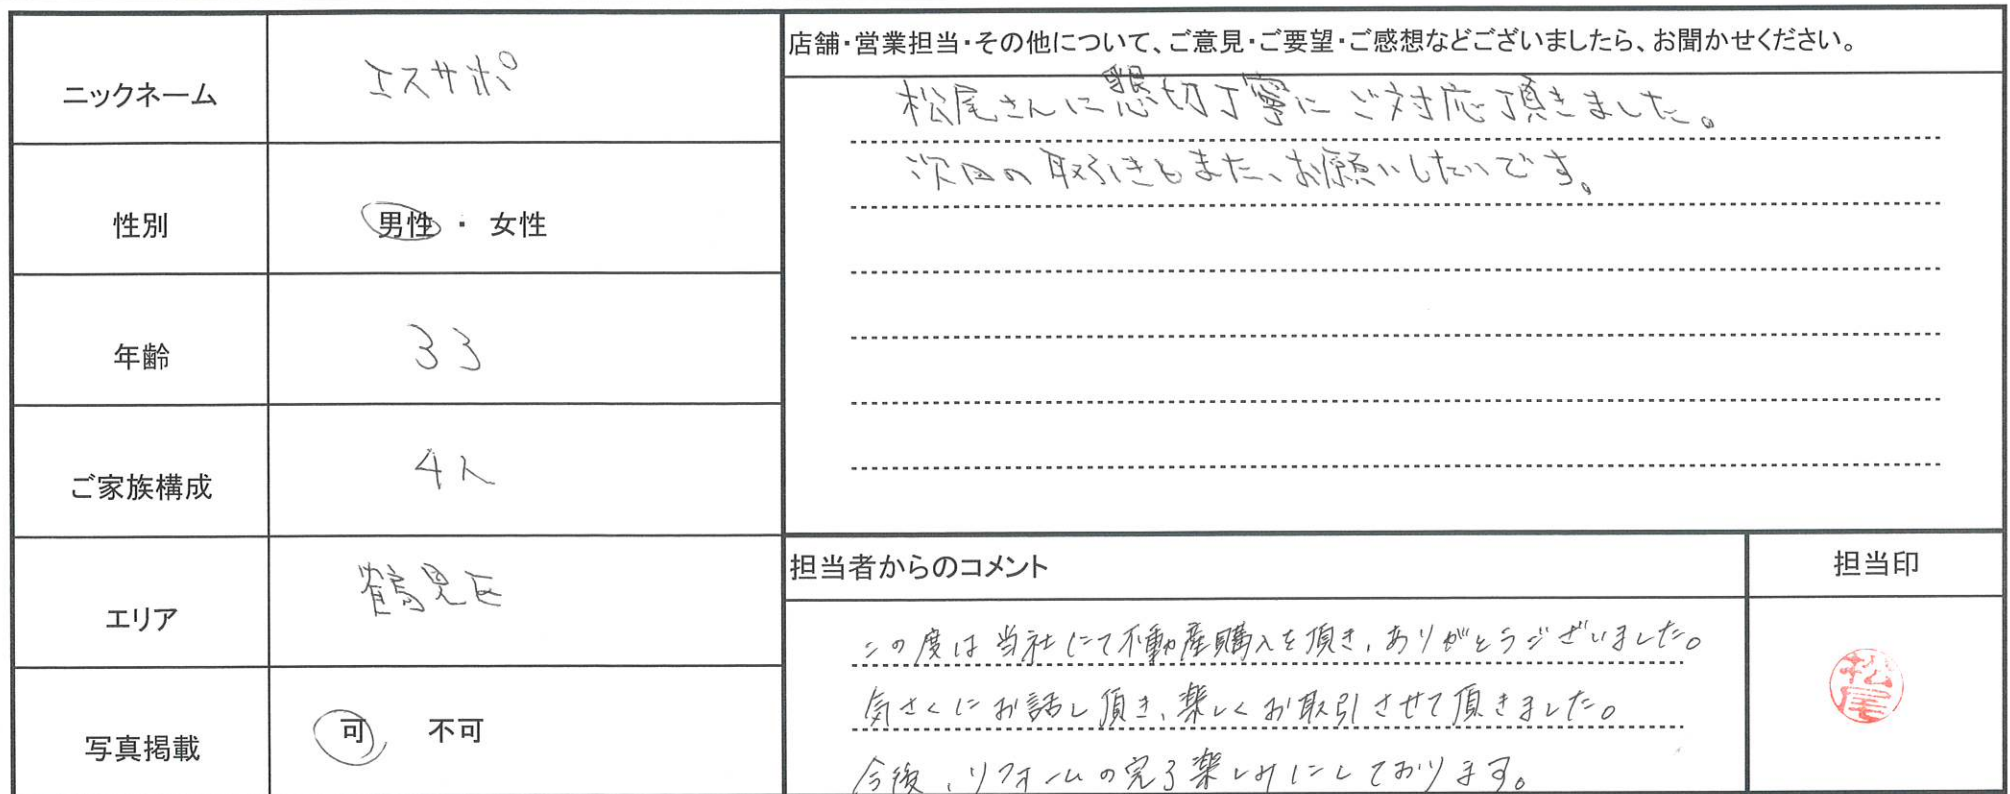 ニックネーム エスサポ
性別 男性 ・ 女性
年齢 33
ご家族構成 4人
エリア 鶴見区
写真掲載 可 不可
店舗・営業担当・その他について、ご意見・ご要望・ご感想などございましたら、お聞かせください。
松尾さんに懇切丁寧にご対応頂きました。
次回の取引きもまた、お願いしたいです。
担当者からのコメント
この度は当社にて不動産購入を頂き、ありがとうございました。
気さくにお話し頂き、楽しくお取引させて頂きました。
今後、リフォームの完了楽しみにしております。
担当印
松尾